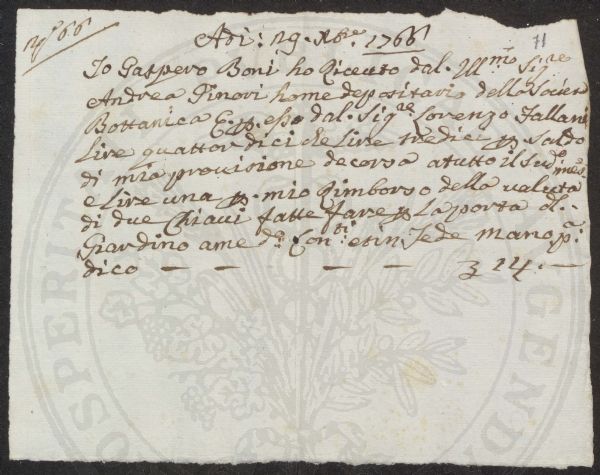 N° 66
71
Adì: 29: Xbre 1766
Io Gaspero Boni ho Riceuto dal. Ill:mo Sig:re
Andrea Ginori home depositario della Societa
Bottanica E. p. esso dal. Sig:re Lorenzo Fallani
Lire quattordici che Lire tredici p. saldo
di mia provisione decorsa a tutto il sud:o mes:
e Lire una p. mio Rimborso della valuta
di due Chiavi fatte fare p La porta del.
Giardino a me d:o Con:ti et in fede mano p:a
dico — — — — — — 14. —
PROSPERITATI
AUGENDAE